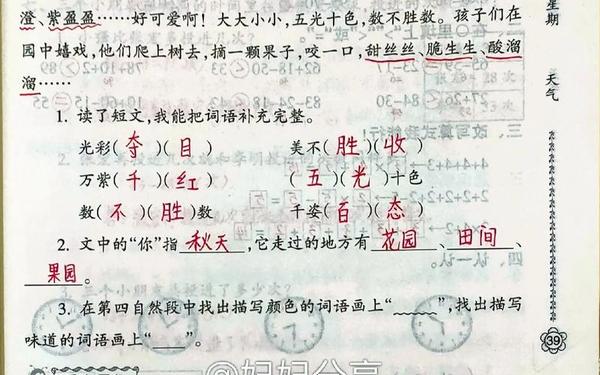 澄、紫盈盈……好可爱啊！大大小小，五光十色，数不胜数。孩子们在
园中嬉戏，他们爬上树去，摘一颗果子，咬一口，甜丝丝、脆生生、酸溜
溜……
1. 读了短文，我能把词语补充完整。
光彩(夺)(目) 美不(胜)(收)
万紫(千)(红) (五)(光)十色
数(不)(胜)数 千姿(百)(态)
2. 文中的“你”指 秋天 ，它走过的地方有 花园 、 田间 、
果园 。
3. 在第四自然段中找出描写颜色的词语画上“﹏﹏”，找出描写
味道的词语画上“___”。
星期
天气
39
@妈妈分享